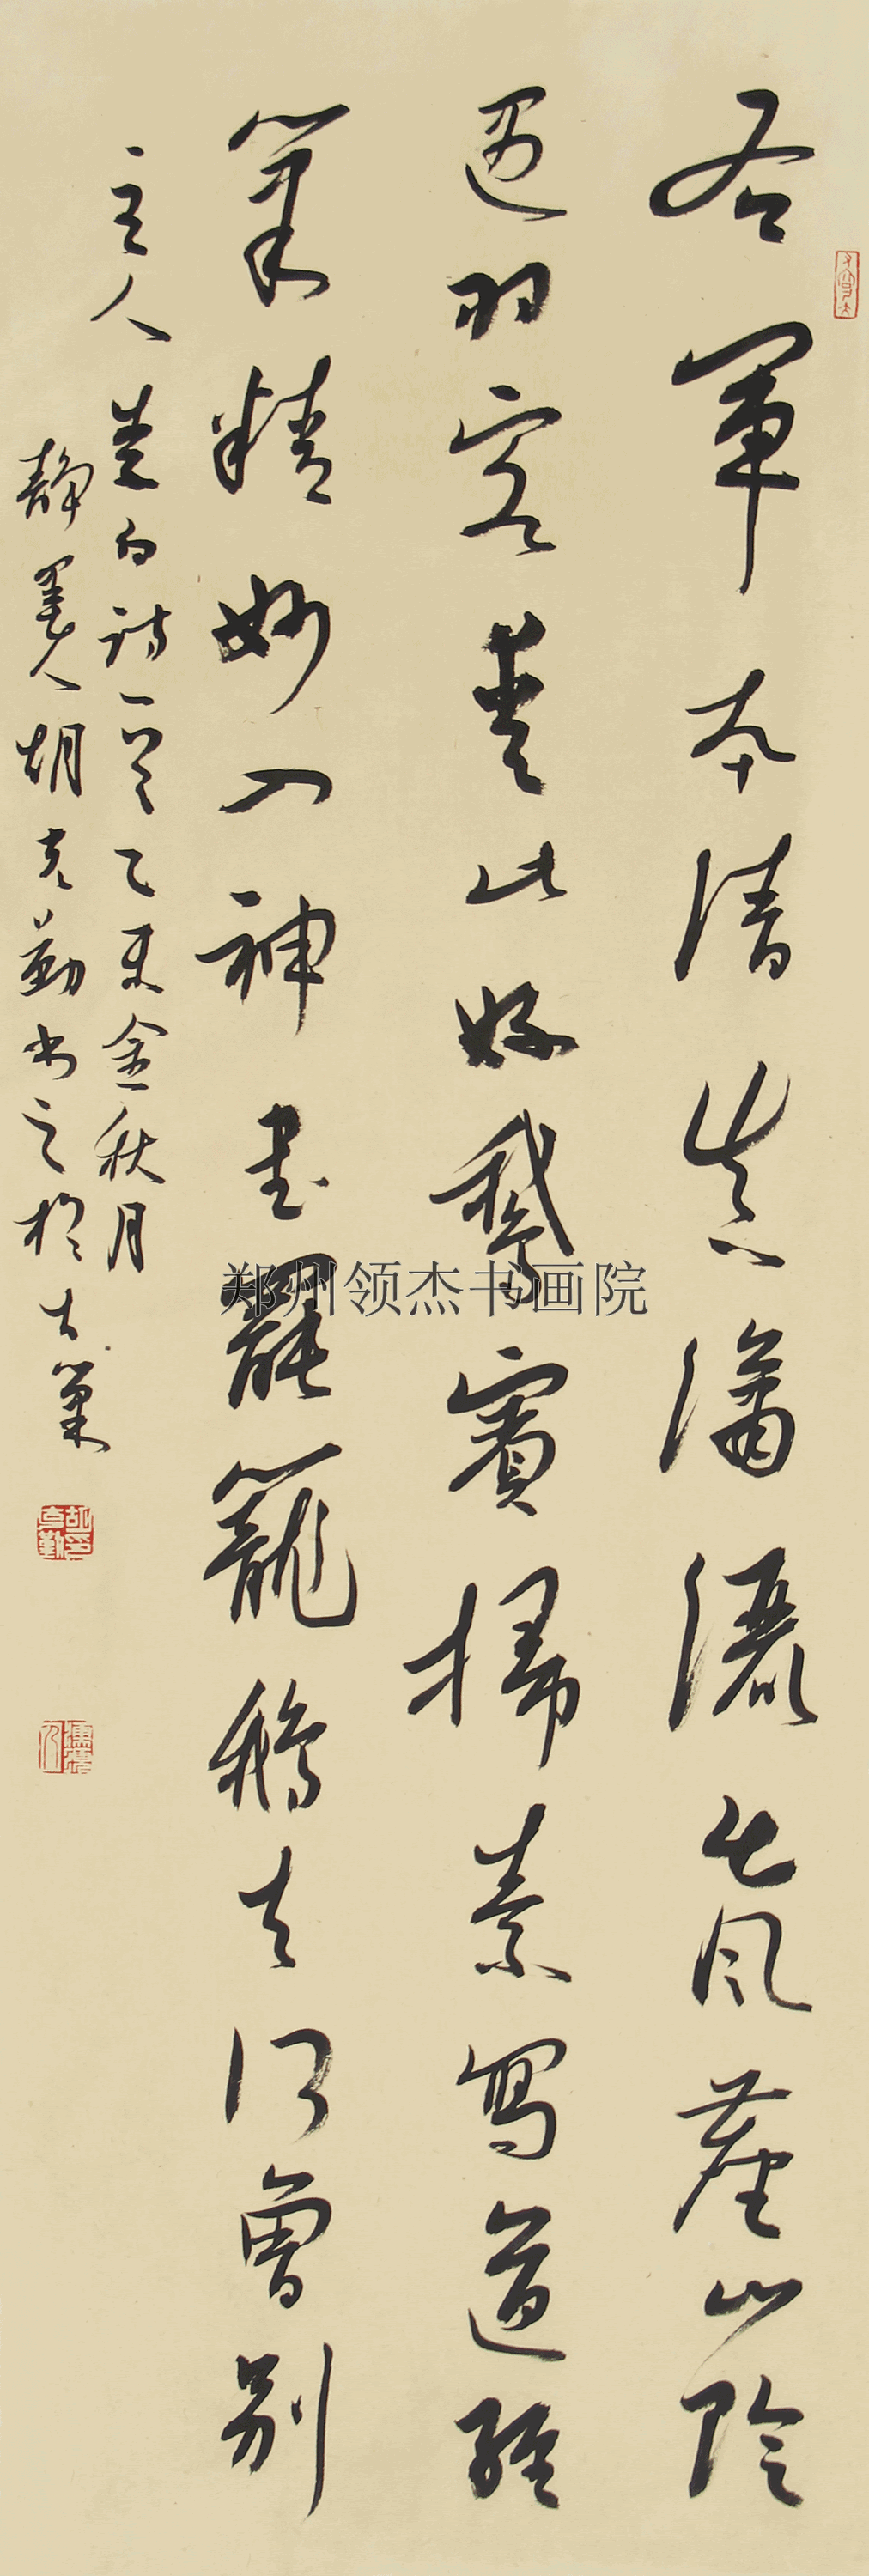 右軍本清真瀟灑出風塵山陰
遇羽客愛此好鵝賓掃素寫道經
筆精妙入神書罷籠鵝去何曾別
主人 李白詩一首乙未金秋月
靜墨人胡克勤書之於古巢
胡克勤印
郑州领杰书画院